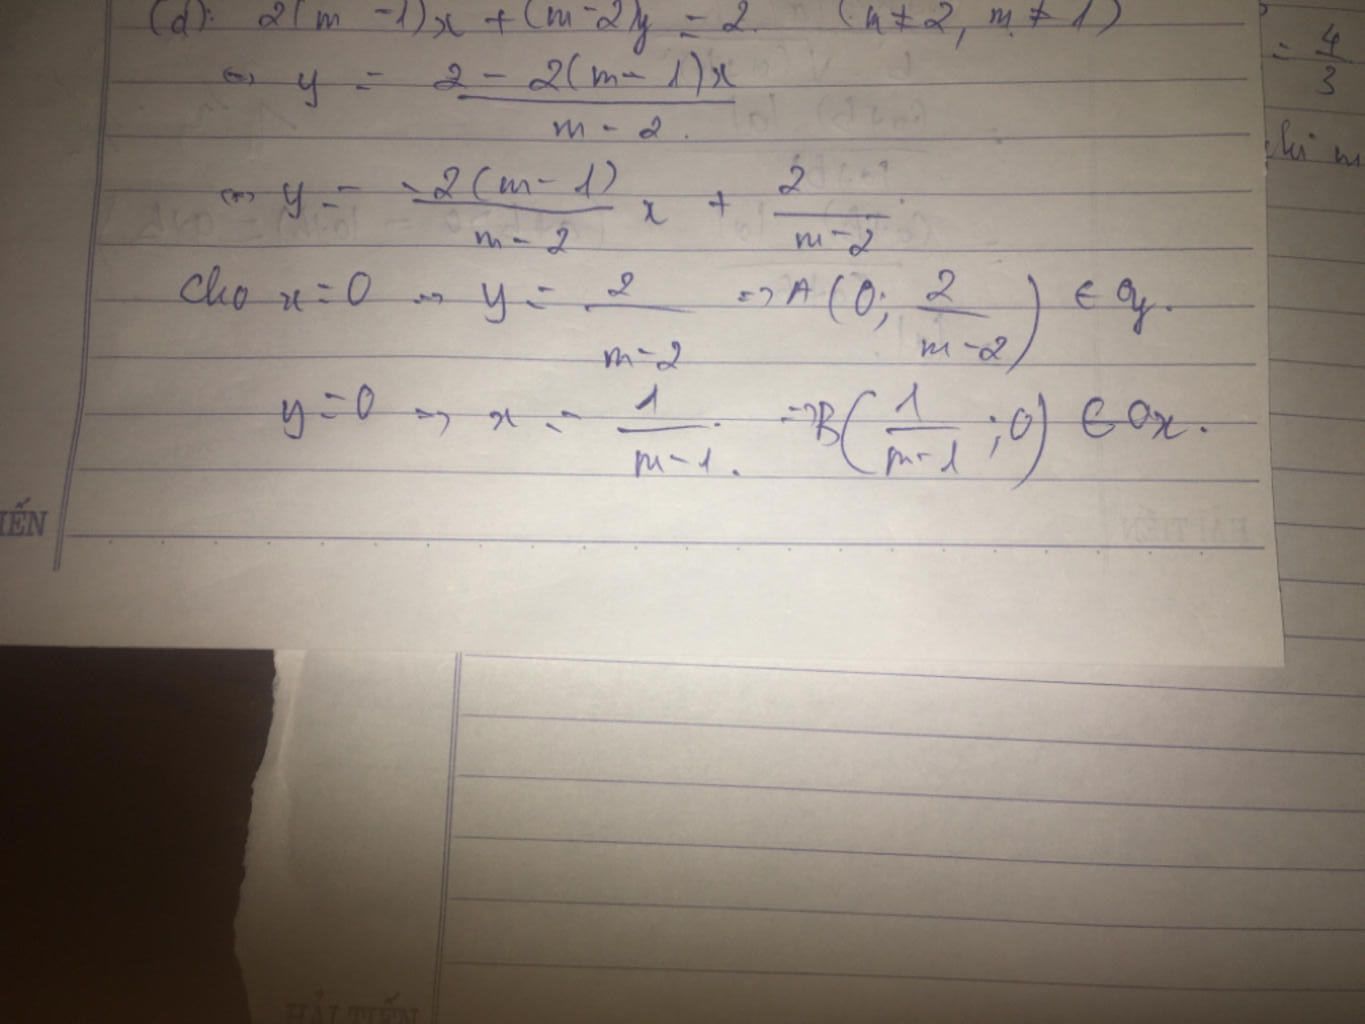 (d): 2(m-1)x + (m-2)y = 2 (m ≠ 2, m ≠ 1)
⇔ y = 2 - 2(m-1)x / m-2.
⇔ y = -2(m-1) / m-2 x + 2 / m-2
Cho x = 0 → y = 2 / m-2 => A (0; 2 / m-2) ∈ Oy.
y = 0 → x = 1 / m-1. => B (1 / m-1 ; 0) ∈ Ox.
= 4 / 3
khi m
IẾN
HẢI TIẾN
HẢI TIẾN